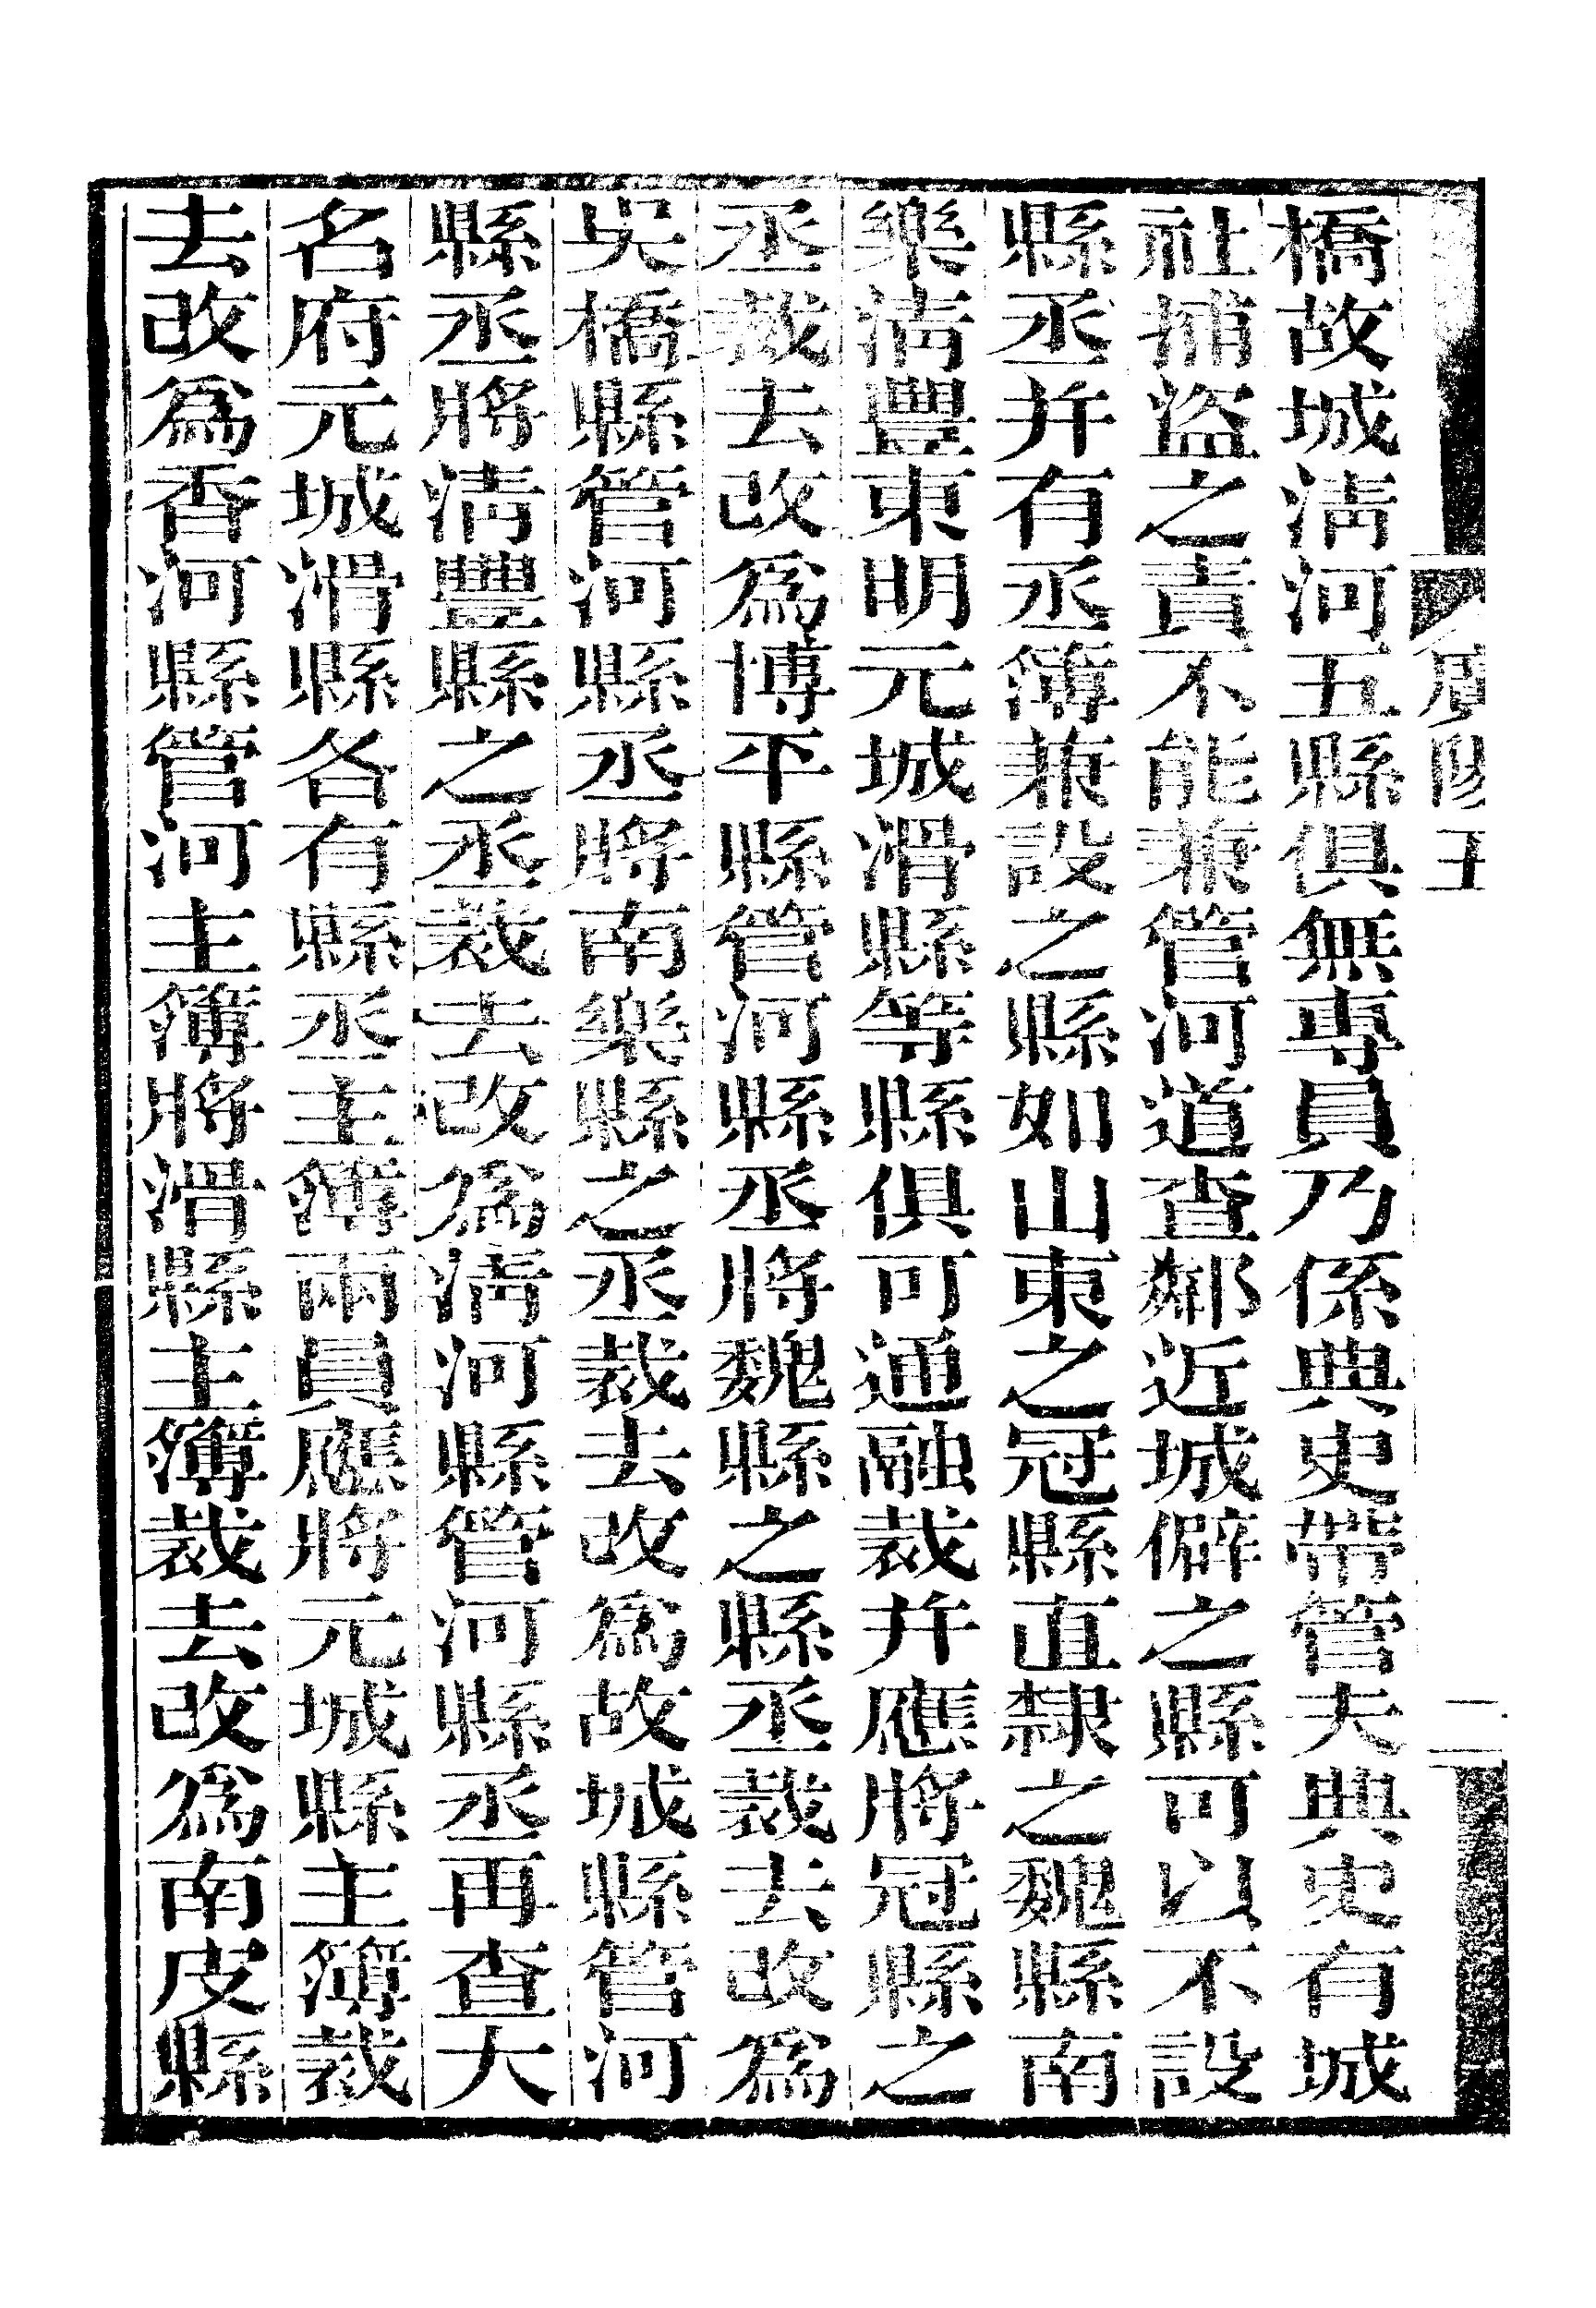 橋故城淸河五縣俱無專員乃係典史帶管夫典史有城
社捕盜之責不能兼管河道查鄰近城僻之縣可以不設
縣丞并有丞簿兼設之縣如山東之冠縣直隸之魏縣南
樂淸豐東明元城滑縣等縣俱可通融裁并應將冠縣之
丞裁去改爲博平縣管河縣丞將魏縣之縣丞裁去改爲
吳橋縣管河縣丞將南樂縣之丞裁去改爲故城縣管河
縣丞將淸豐縣之丞裁去改爲淸河縣管河縣丞再查大
名府元城滑縣各有縣丞主簿兩員應將元城縣主簿裁
去改爲香河縣管河主簿將滑縣主簿裁去改爲南皮縣
二